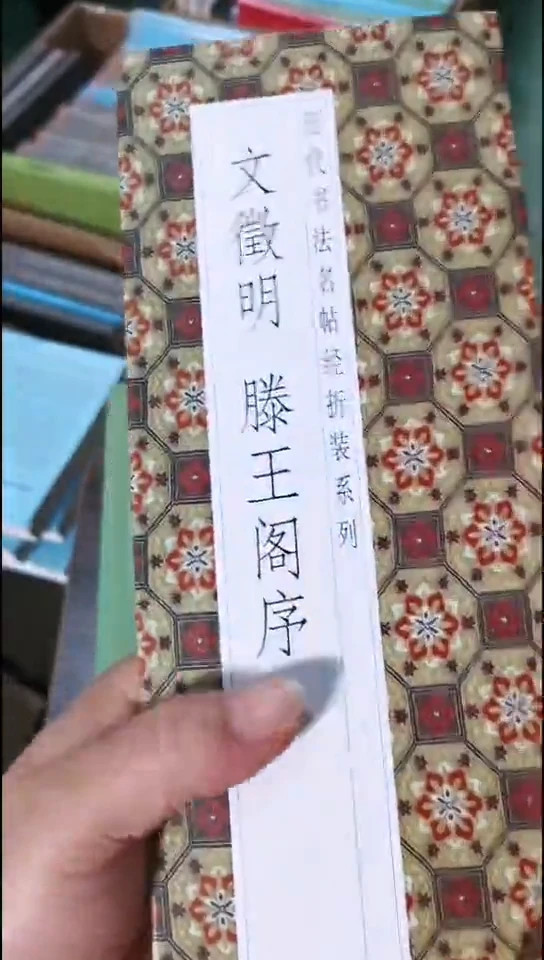 代书法名帖经折装系列
文徵明 滕王阁序